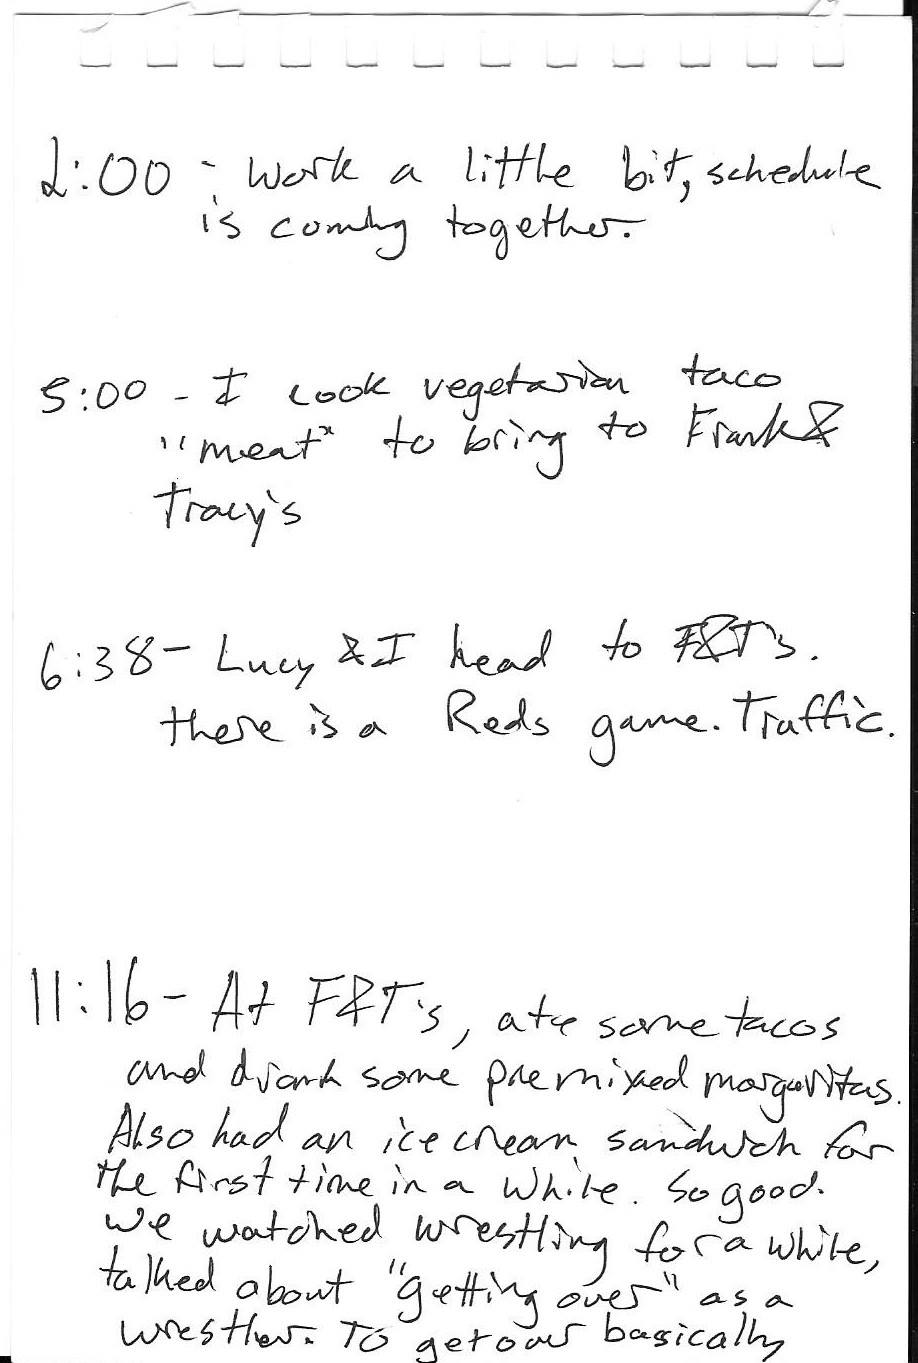 2:00 - Work a little bit, schedule
is coming together.
5:00 - I cook vegetarian taco
"meat" to bring to Frank &
Tracy's
6:38 - Lucy & I head to F&T's.
there is a Reds game. Traffic.
11:16 - At F&T's, ate some tacos
and drank some premixed margaritas.
Also had an ice cream sandwich for
the first time in a while. So good.
We watched wrestling for a while,
talked about "getting over" as a
wrestler. To get over basically